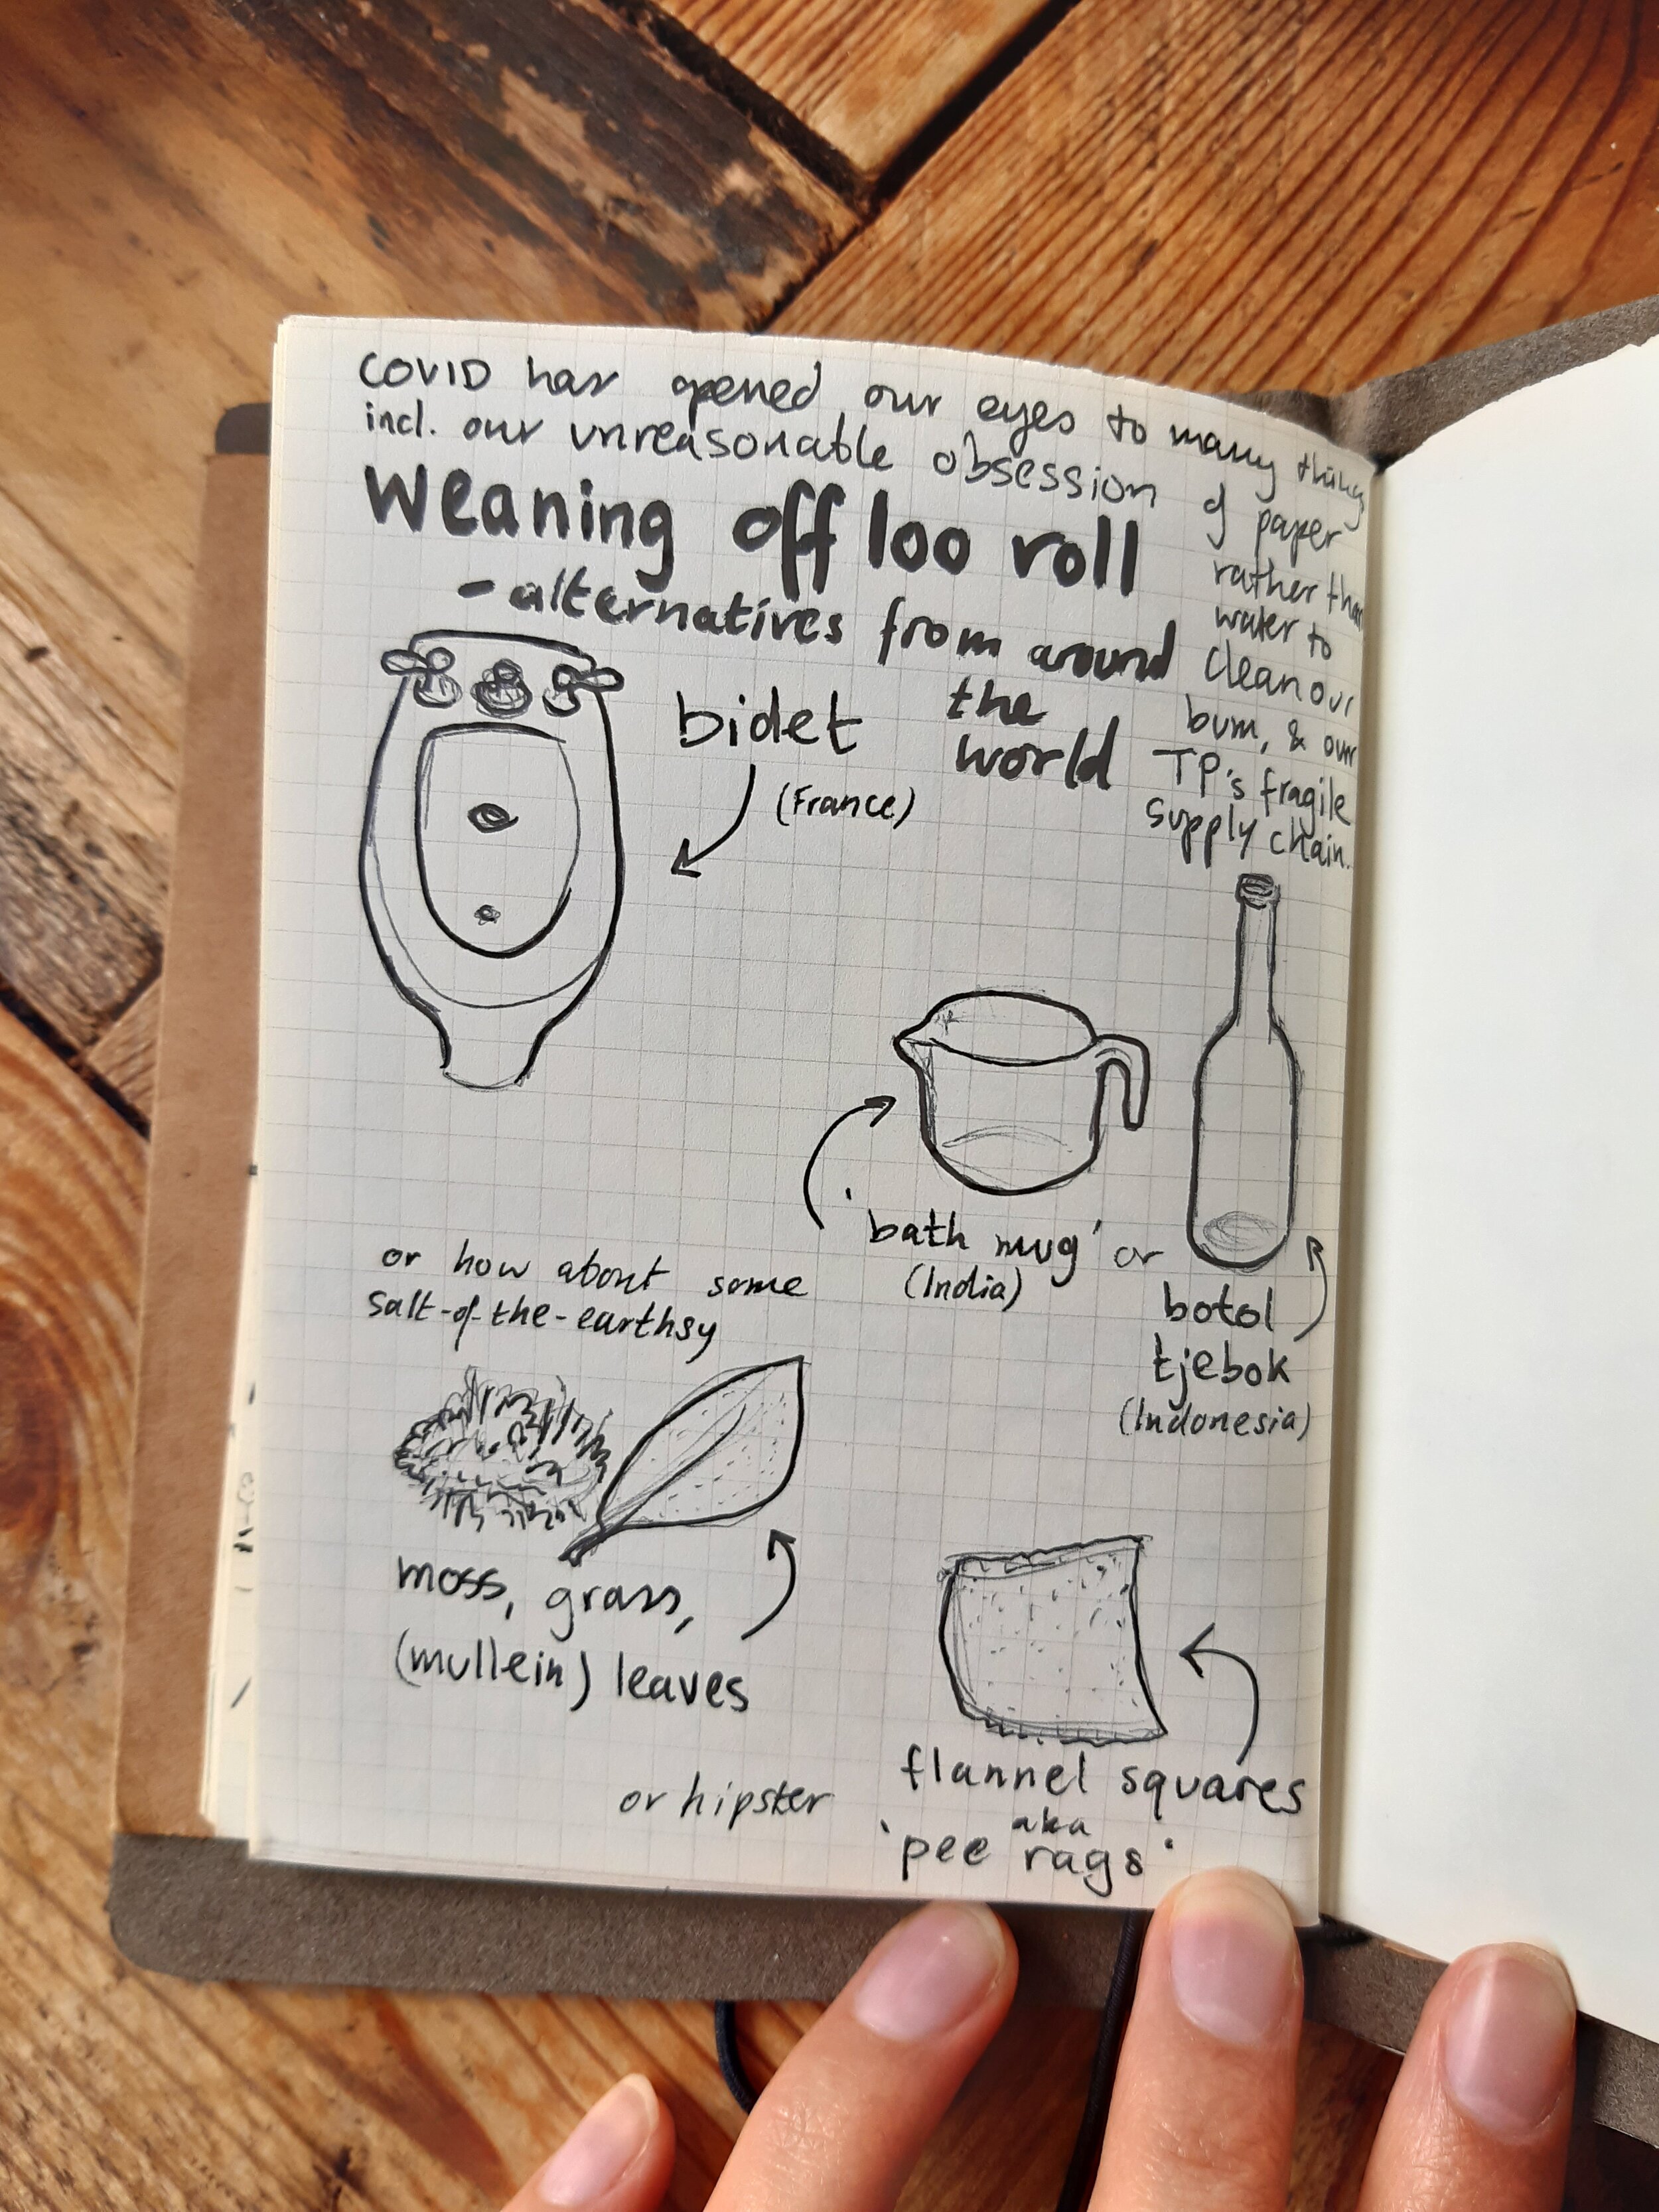 COVID has opened our eyes to many things
incl. our unreasonable obsession
of paper
rather than
water to
clean our
bum, & our
TP's fragile
supply chain.
Weaning off loo roll
- alternatives from around
the
world
bidet
(France)
'bath mug' or
(India)
botol
tjebok
(Indonesia)
or how about some
salt-of-the-earthsy
moss, grass,
(mullein) leaves
or hipster
flannel squares
aka
'pee rags'